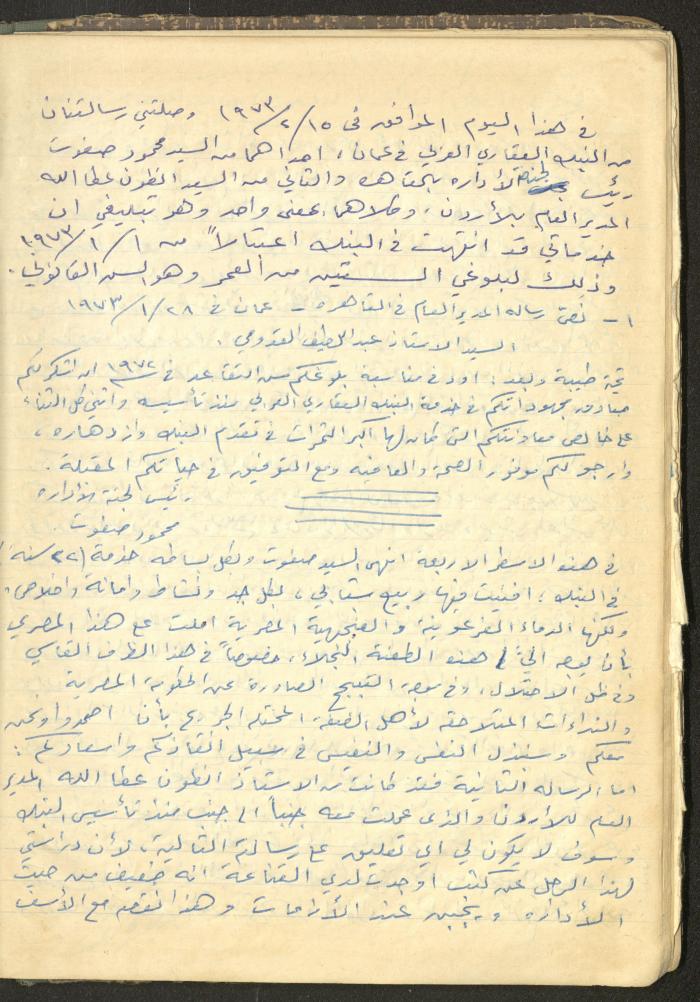 في هذا اليوم الموافق في ١٥/٢/١٩٧٣ وصلتني رسالتان
من البنك العقاري العربي في عمان، احداهما من السيد محمود صفوت
رئيس لجنة الأداره بالقاهره والثاني من السيد انطون عطا الله
المدير العام بالأردن، وكلاهما بمعنى واحد وهو تبليغي ان
خدماتي قد انتهت في البنك اعتباراً من ١/١/١٩٧٣
وذلك لبلوغي الستين من العمر وهو السن القانوني.
١ـ نص رساله المدير العام في القاهره - عمان في ٢٨/١/١٩٧٣
السيد الاستاذ عبد اللطيف القدومي.
تحية طيبة وبعد: اود في مناسبة بلوغكم سن التقاعد في ١٩٧٢ ان اشكر لكم
صادق مجهوداتكم في خدمة البنك العقاري العربي منذ تأسيسه واثني كل الثناء
على خالص معاونتكم التي كان لها اكبر الثمرات في تقدم البنك وازدهاره،
وارجو لكم موفور الصحة والعافيه ومع التوفيق في حياتكم المقبلة.
رئيس لجنة الأداره
محمود صفوت
في هذه الاسطر الاربعة انهى السيد صفوت وبكل بساطه خدمة (٢٢ سنة)
في البنك؛ افنيت فيها ربيع شبابي، بكل جد ونشاط وامانة واخلاص،
ولكنها الدماء الفرعونية والعنجهية المصرية املت على هذا المصري
بأن يوجه اليّ هذه الطعنة النجلاء، خصوصاً في هذا الظرف القاسي
وفي ظل الاحتلال، وفي موجة التبجح الصادرة عن الحكومة المصرية
والنداءات المتلاحقه لأهل الضفة المحتله الجريح بأن اصمدوا ونحن
معكم وسنبذل النفس والنفيس في سبيل انقاذكم واسعادكم:
اما الرساله الثانية فقد كانت من الاستاذ انطون عطا الله المدير
العام للاردن والذي عملت معه جنباً الى جنب منذ تأسيس البنك
وسوف لا يكون لي اي تعليق على رسالته التالية، لأن دراستي
لهذا الرجل عن كثب اوجدت لدي القناعة انه ضعيف من حيث
الأداره ويجبن عند الأزمات وهذا النقص مع الأسف